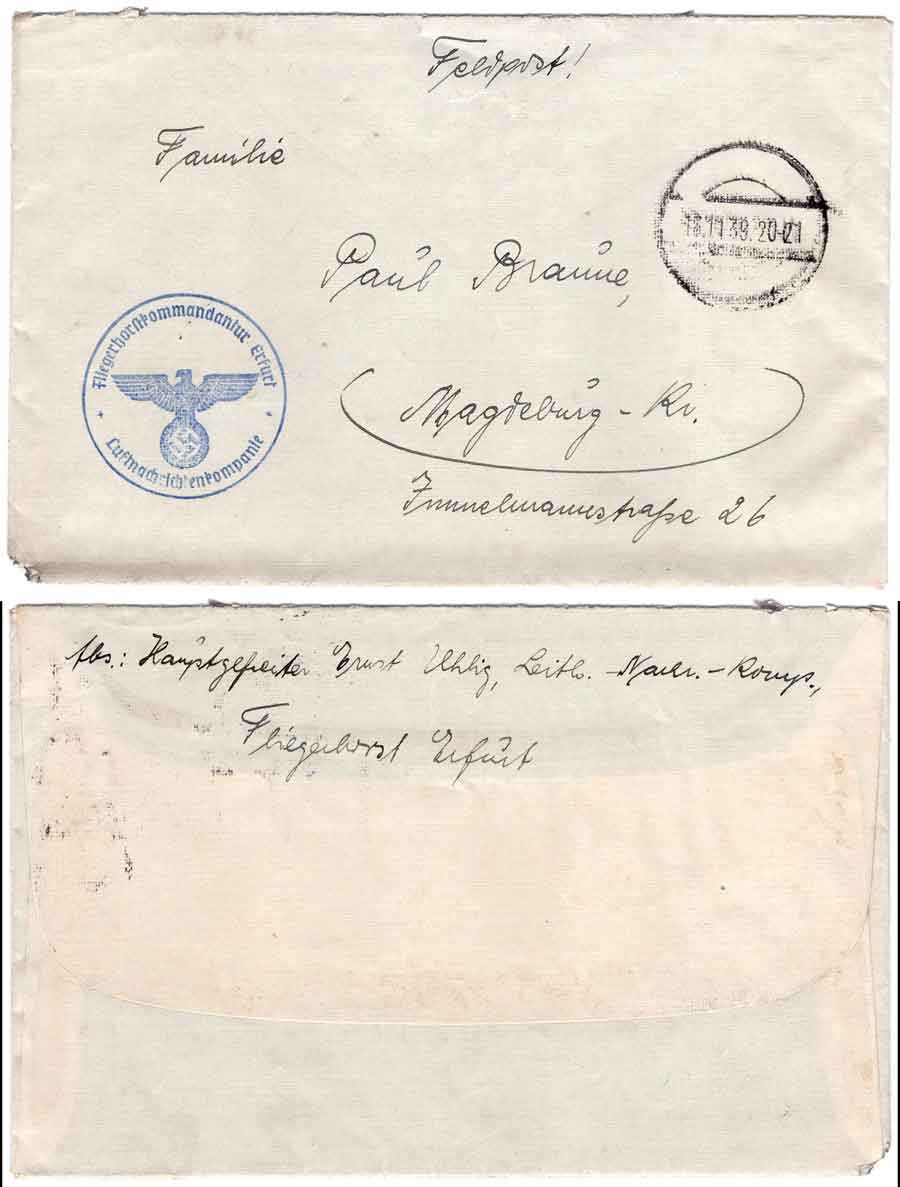 Feldpost!
Familie
Paul Braune,
Magdeburg-Ki.
Immelmannstraße 26
.11.39.20-21
Fliegerhorstkommandantur Erfurt
Luftnachrichtenkompanie
Abs.: Hauptgefreiter Ernst Uhlig, -Komp.,
Fliegerhorst Erfurt